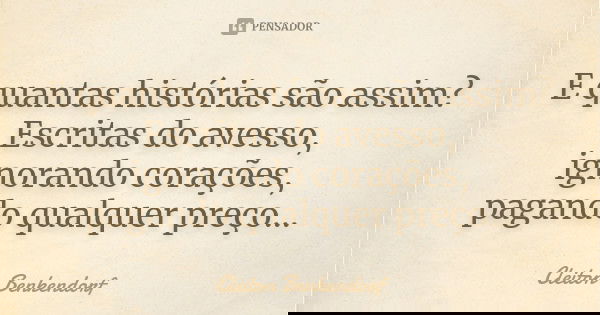 PENSADOR
E quantas histórias são assim?
Escritas do avesso,
ignorando corações,
pagando qualquer preço...
Cleiton Benkendorf